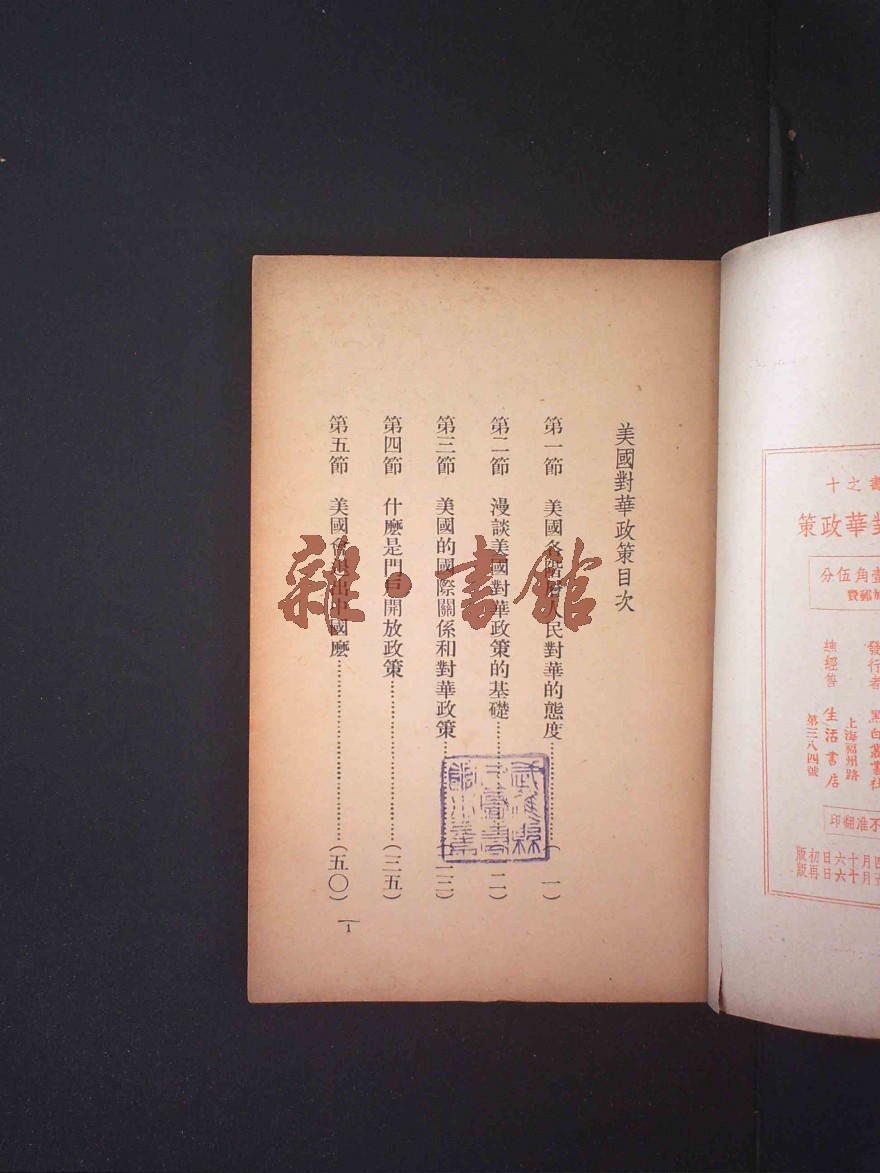 美國對華政策目次
第一節　美國各階層人民對華的態度……(一)
第二節　漫談美國對華政策的基礎……(二)
第三節　美國的國際關係和對華政策……(二三)
第四節　什麼是門戶開放政策……(三五)
第五節　美國會退出中國麼……(五〇)
1
雜·書館
書之十
對華政策
壹角伍分
加郵費
發行者
黑白叢書社
總經售
生活書店
上海福州路
第三八四號
不准翻印
四月十六日初版
月十六日再版